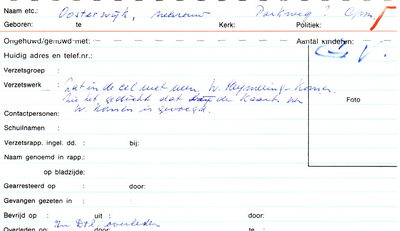 Naam etc.: Oosterwijk, mevrouw Parkweg ? Opm.
Geboren: te Kerk: Politiek:
Ongehuwd/gehuwd met: Aantal kinderen:
Huidig adres en telef.nr.:
Verzetsgroep :
Verzetswerk : Zat in de cel met mevr. W. Heymeling-Komen
Foto
W. Komen is gevoegd.
Contactpersonen:
Schuilnamen :
Verzetsrapp. ingel. dd. : bij:
Naam genoemd in rapp.:
op bladzijde:
Gearresteerd op : door:
Gevangen gezeten in :
Bevrijd op : uit : door:
In Dtl. overleden
Overleden op : te :